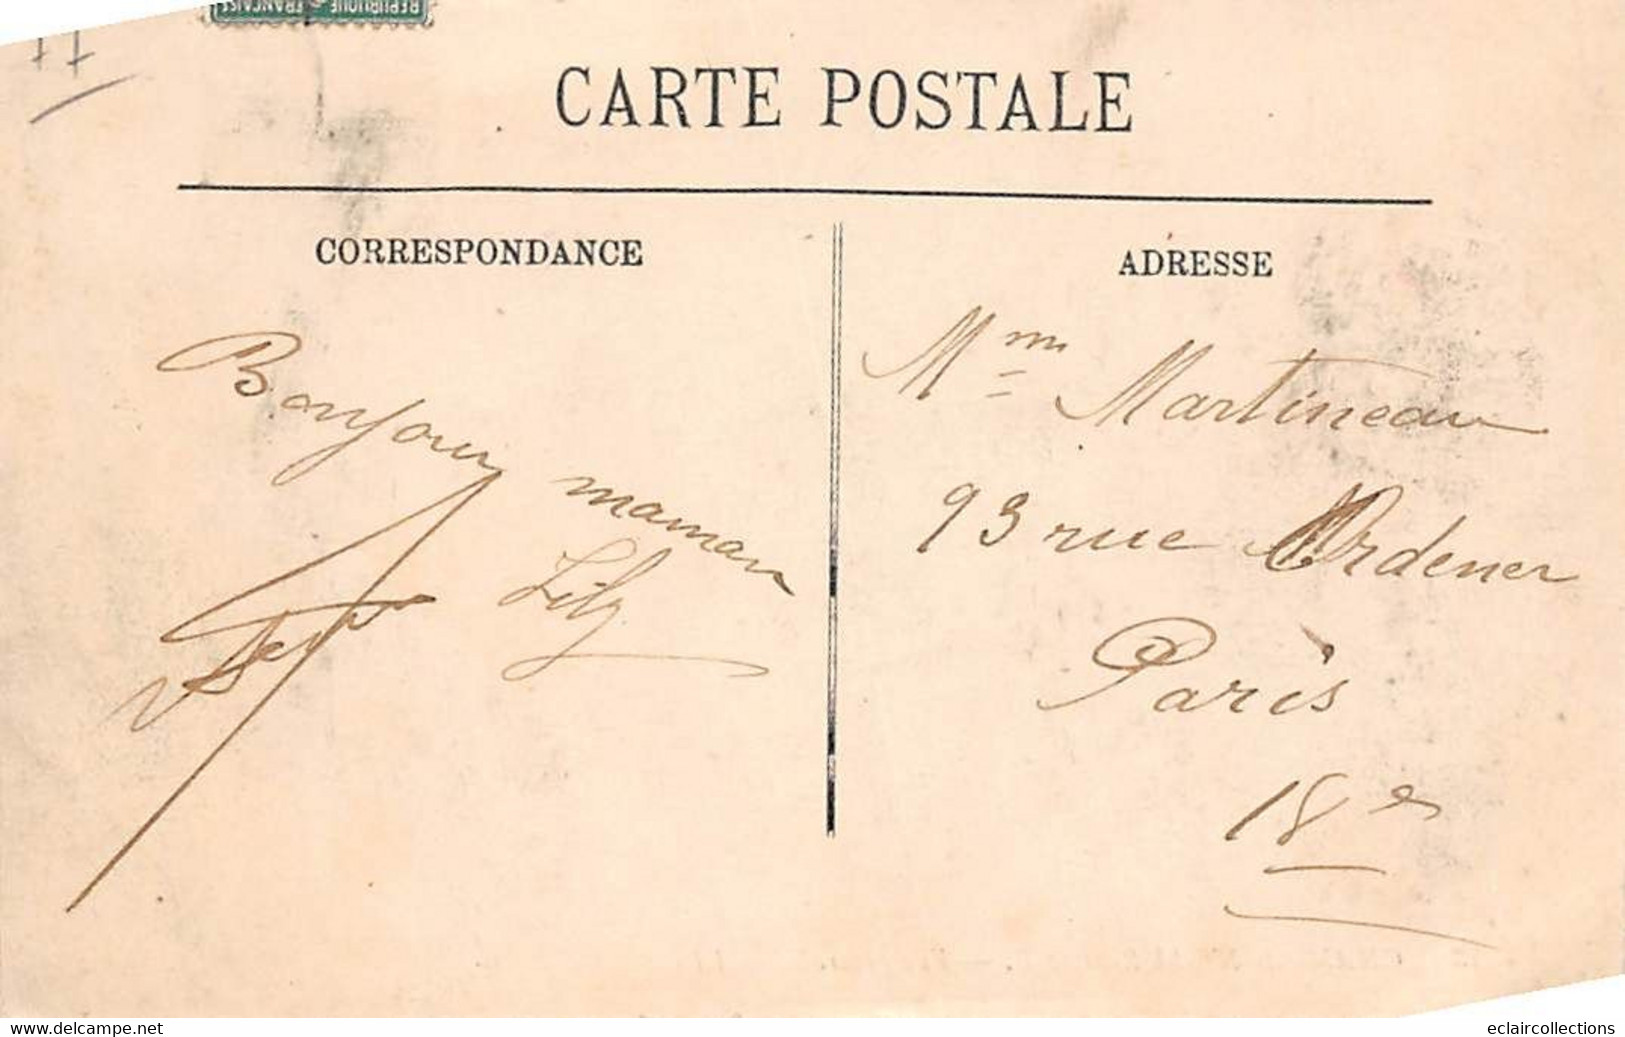 REPUBLIQUE FRANÇAISE
77
CARTE POSTALE
CORRESPONDANCE
ADRESSE
Bonjour maman
Lily
Mme Martineau
93 rue Ordener
Paris
18e
www.delcampe.net
eclaircollections